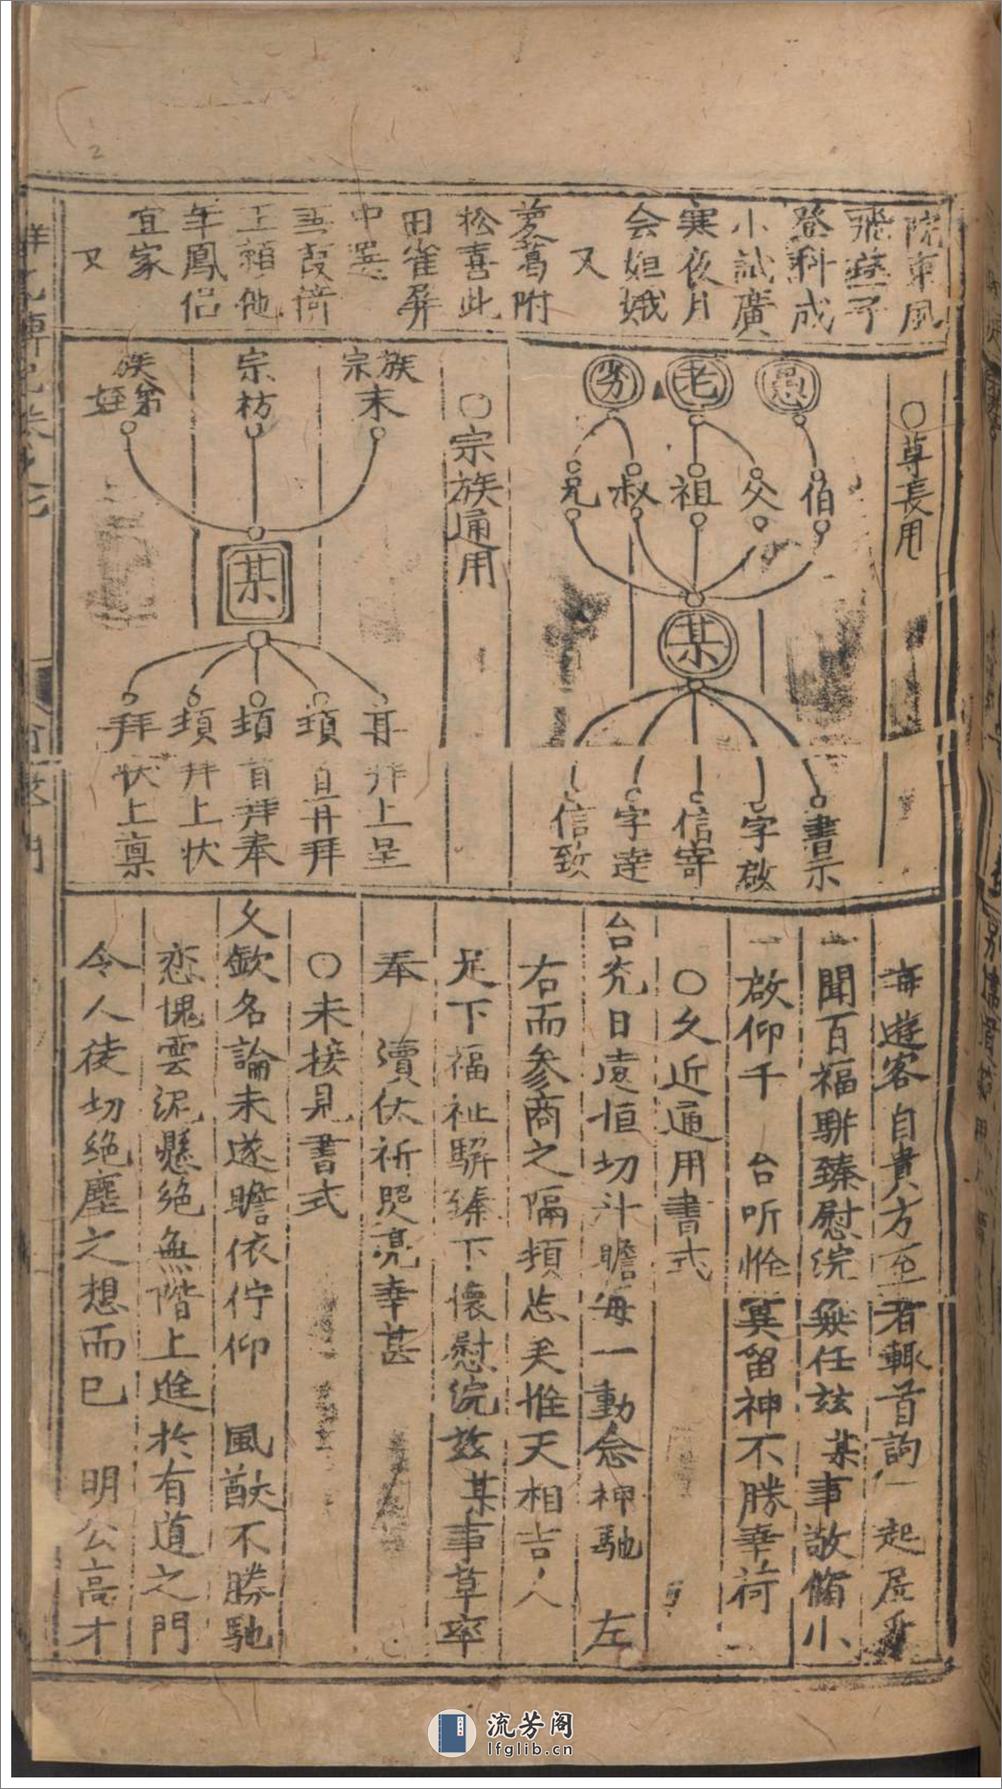 院東風
飛燕子
登科成
小試廣
寒夜月
会妲娥
又
蔦附
松喜此
田雀屏
中選
倚
玉
年鳳侶
宜家
又
○尊長用
愚
老
劣
伯
父
祖
叔
兄
某
書示
字啟
信寄
字達
信致
○宗族通用
族宗末
宗枋
族弟姪
某
再拜上呈
頓首再拜
頓首拜奉
頓拜上狀
拜狀上稟
海遊客自貴方至者輒首詢一起居
聞百福駢臻慰浣無任玆某事敬脩小
啟仰千台听惟冀留神不勝幸荷
○久近通用書式
台光日遠恒切斗瞻每一動念神馳左
右而参商之隔損怎矣惟天相吉人
足下福祉駢臻下懷慰浣玆某事草率
奉瀆伏祈照亮幸甚
○未接見書式
久欽名論未遂瞻依佇仰風猷不勝馳
恋愧雲泥懸絶無階上進於有道之門
令人徒切絶塵之想而已明公高才
流芳阁
lfglib.cn